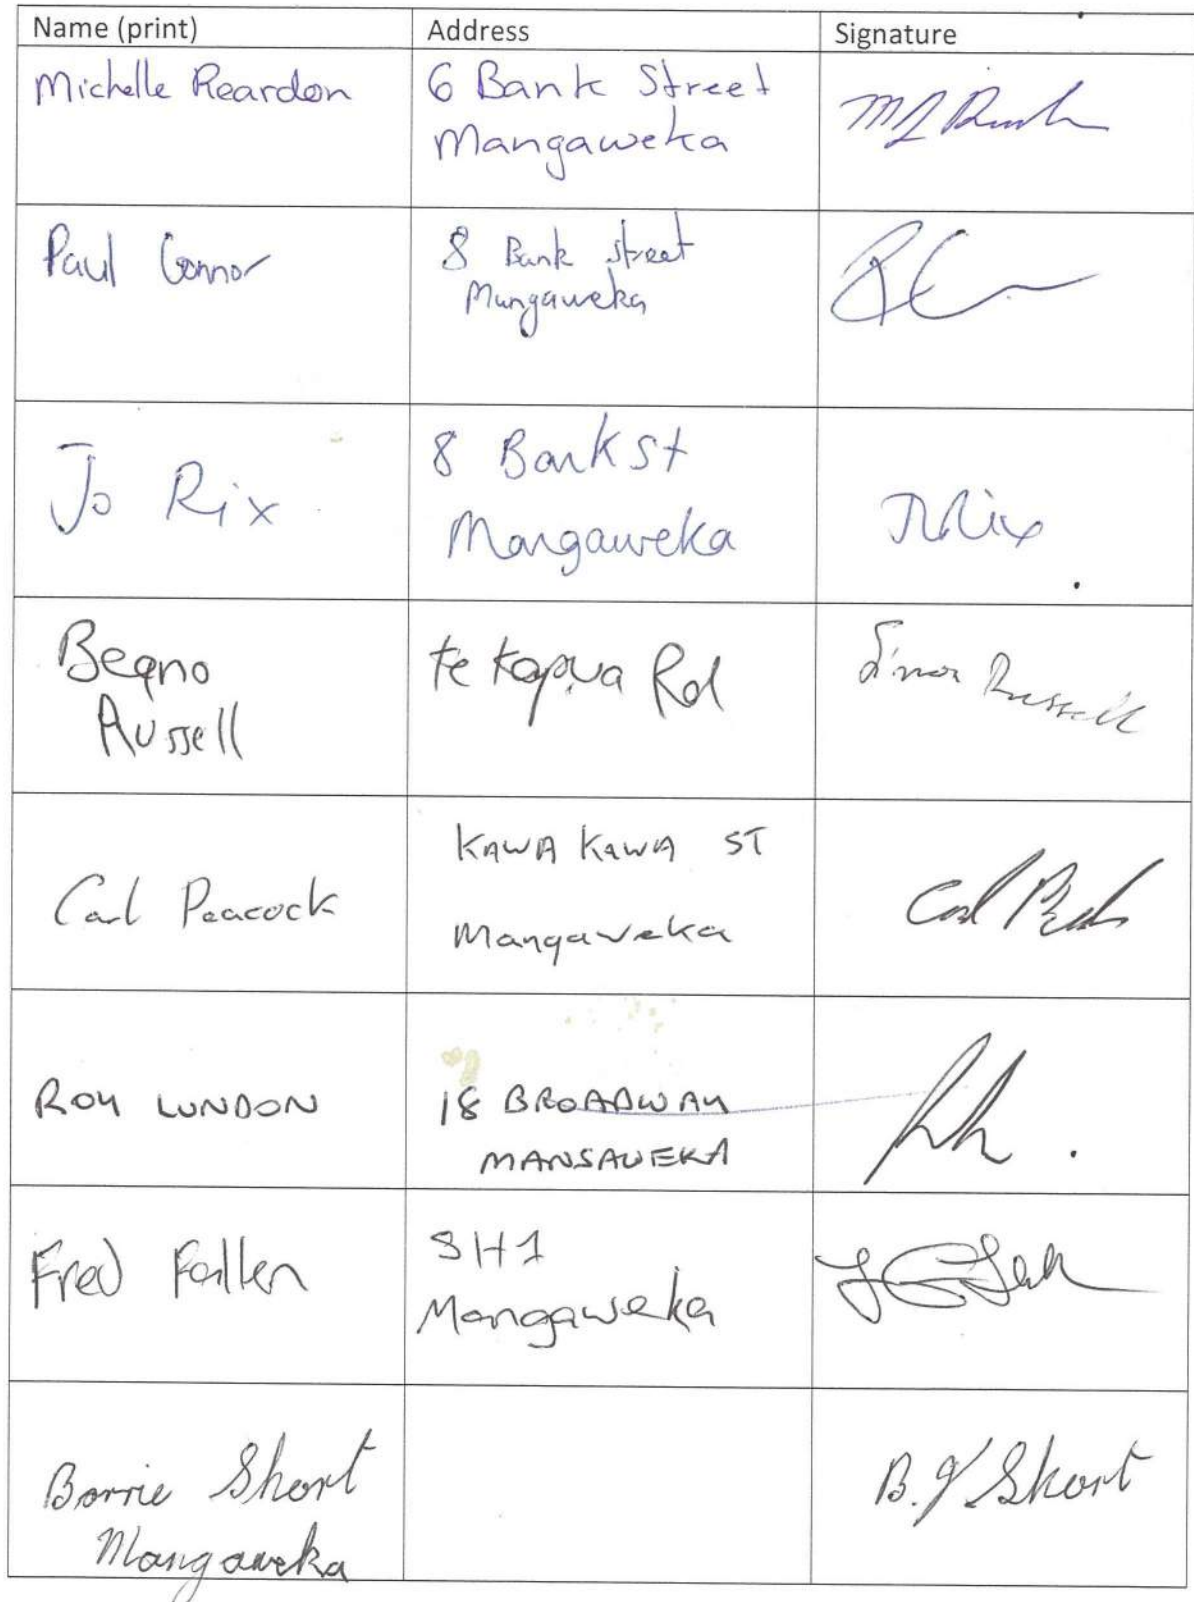 Name (print) Address Signature
Michelle Reardon
6 Bank Street
Mangaweka
Paul Connor
8 Bank street
Mangaweka
Jo Rix
8 Bank St
Mangaweka
JRix
Russell
Rd
Russell
Carl Peacock
KAWA KAWA ST
Mangaweka
Carl
ROY LUNDON
18 BROADWAY
MANGAWEKA
Fred
SH1
Mangaweka
Barrie Short
Mangaweka
B. J Short